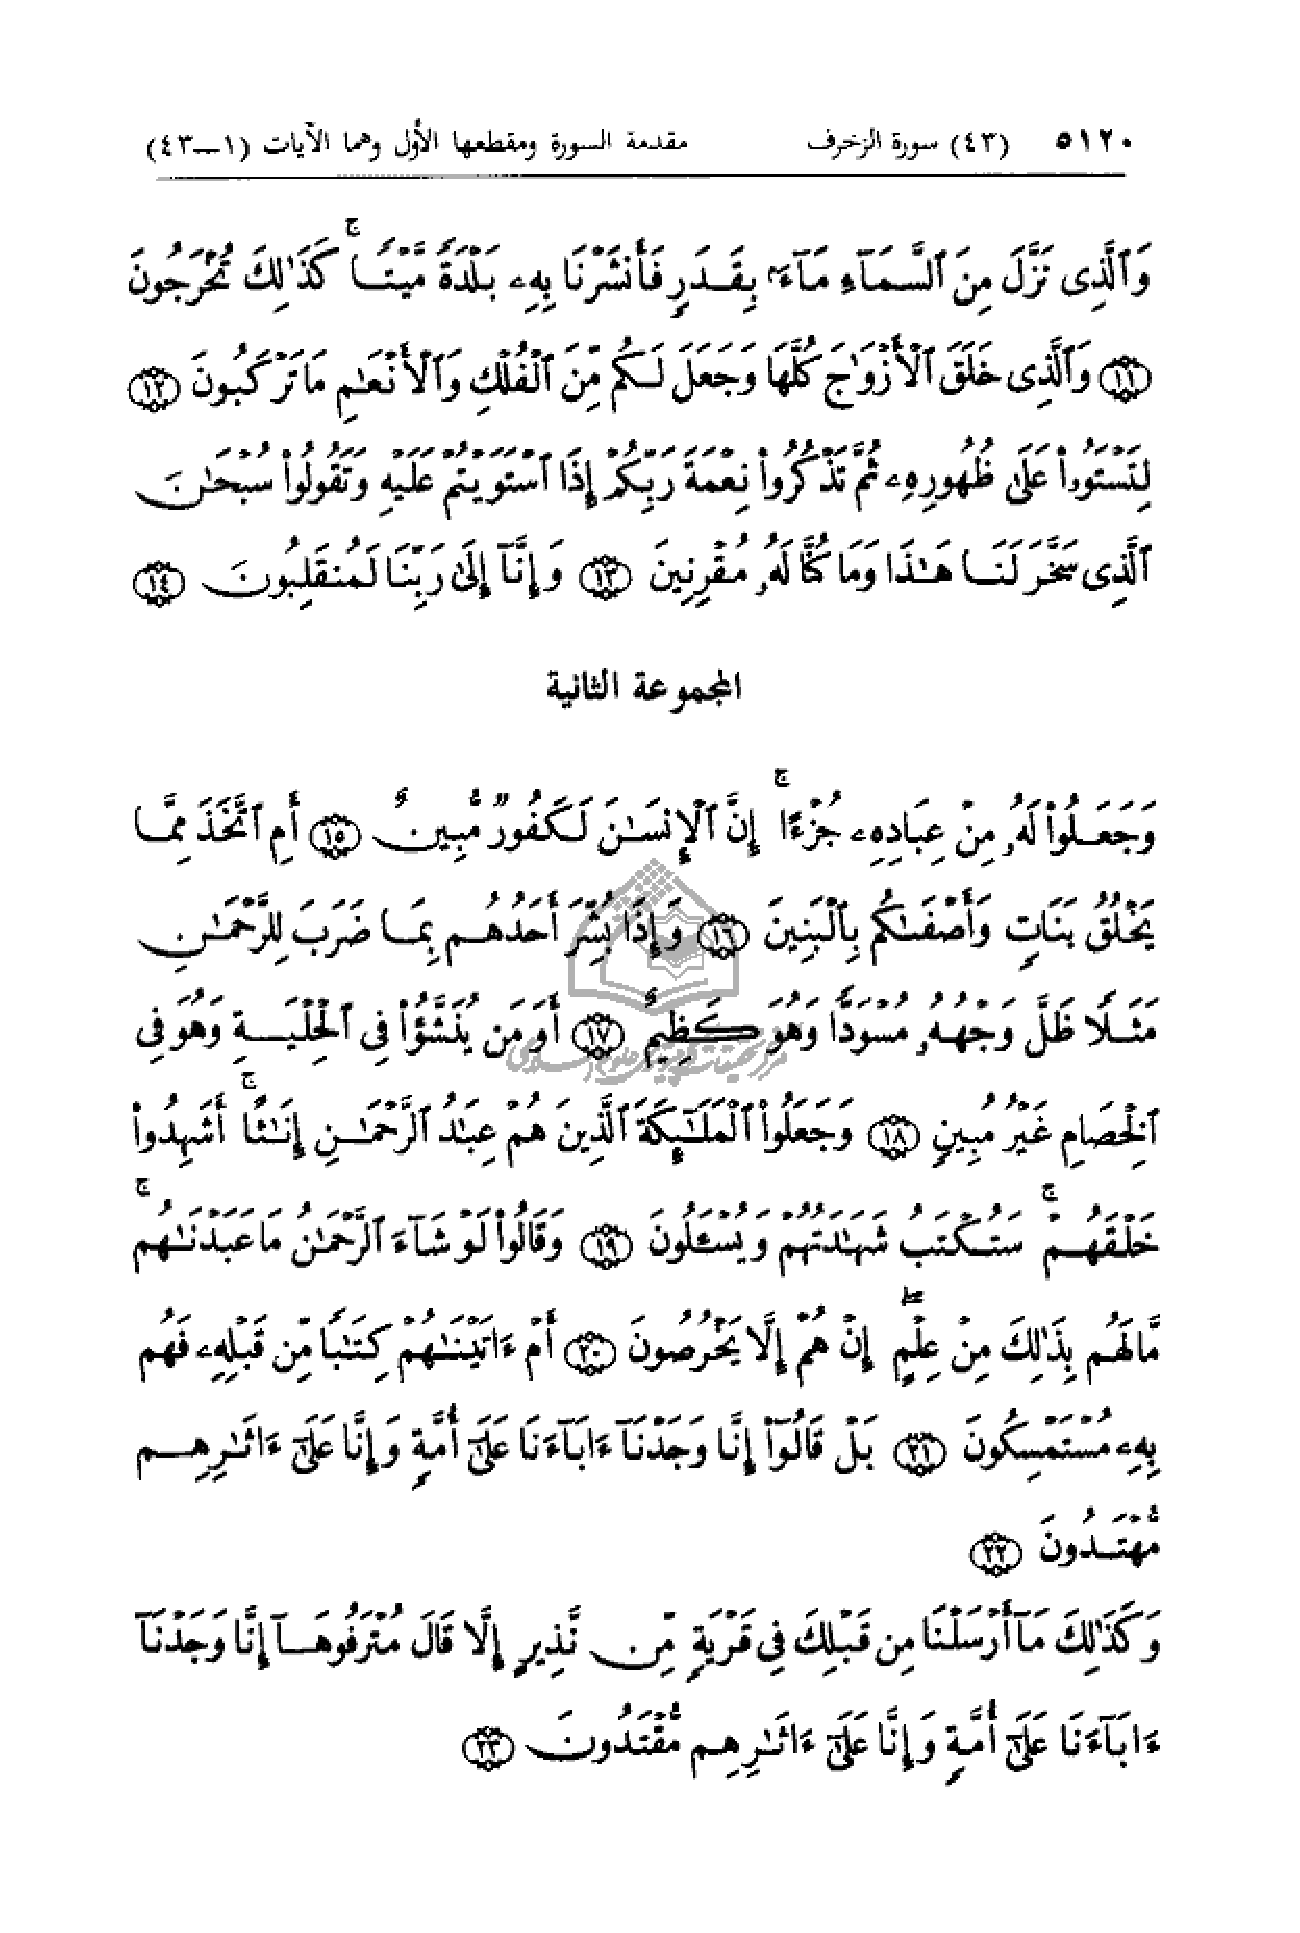 ٥١٢٠ (٤٣) سورة الزخرف مقدمة السورة ومقطعها الأول وهما الآيات (١ـ٤٣)
وَٱلَّذِى نَزَّلَ مِنَ ٱلسَّمَآءِ مَآءَۢ بِقَدَرٍ فَأَنشَرْنَا بِهِۦ بَلْدَةً مَّيْتًا ۚ كَذَٰلِكَ تُخْرَجُونَ
﴿١١﴾ وَٱلَّذِى خَلَقَ ٱلْأَزْوَٰجَ كُلَّهَا وَجَعَلَ لَكُم مِّنَ ٱلْفُلْكِ وَٱلْأَنْعَٰمِ مَا تَرْكَبُونَ ﴿١٢﴾
لِتَسْتَوُۥا۟ عَلَىٰ ظُهُورِهِۦ ثُمَّ تَذْكُرُوا۟ نِعْمَةَ رَبِّكُمْ إِذَا ٱسْتَوَيْتُمْ عَلَيْهِ وَتَقُولُوا۟ سُبْحَٰنَ
ٱلَّذِى سَخَّرَ لَنَا هَٰذَا وَمَا كُنَّا لَهُۥ مُقْرِنِينَ ﴿١٣﴾ وَإِنَّآ إِلَىٰ رَبِّنَا لَمُنقَلِبُونَ ﴿١٤﴾
المجموعة الثانية
وَجَعَلُوا۟ لَهُۥ مِنْ عِبَادِهِۦ جُزْءًا ۚ إِنَّ ٱلْإِنسَٰنَ لَكَفُورٌ مُّبِينٌ ﴿١٥﴾ أَمِ ٱتَّخَذَ مِمَّا
يَخْلُقُ بَنَاتٍ وَأَصْفَىٰكُم بِٱلْبَنِينَ ﴿١٦﴾ وَإِذَا بُشِّرَ أَحَدُهُم بِمَا ضَرَبَ لِلرَّحْمَٰنِ
مَثَلًا ظَلَّ وَجْهُهُۥ مُسْوَدًّا وَهُوَ كَظِيمٌ ﴿١٧﴾ أَوَمَن يُنَشَّؤُا۟ فِى ٱلْحِلْيَةِ وَهُوَ فِى
ٱلْخِصَامِ غَيْرُ مُبِينٍ ﴿١٨﴾ وَجَعَلُوا۟ ٱلْمَلَٰٓئِكَةَ ٱلَّذِينَ هُمْ عِبَٰدُ ٱلرَّحْمَٰنِ إِنَٰثًا ۚ أَشَهِدُوا۟
خَلْقَهُمْ ۚ سَتُكْتَبُ شَهَٰدَتُهُمْ وَيُسْـَٔلُونَ ﴿١٩﴾ وَقَالُوا۟ لَوْ شَآءَ ٱلرَّحْمَٰنُ مَا عَبَدْنَٰهُم ۚ
مَّا لَهُم بِذَٰلِكَ مِنْ عِلْمٍ ۖ إِنْ هُمْ إِلَّا يَخْرُصُونَ ﴿٢٠﴾ أَمْ ءَاتَيْنَٰهُمْ كِتَٰبًا مِّن قَبْلِهِۦ فَهُم
بِهِۦ مُسْتَمْسِكُونَ ﴿٢١﴾ بَلْ قَالُوٓا۟ إِنَّا وَجَدْنَآ ءَابَآءَنَا عَلَىٰٓ أُمَّةٍ وَإِنَّا عَلَىٰٓ ءَاثَٰرِهِم
مُّهْتَدُونَ ﴿٢٢﴾
وَكَذَٰلِكَ مَآ أَرْسَلْنَا مِن قَبْلِكَ فِى قَرْيَةٍ مِّن نَّذِيرٍ إِلَّا قَالَ مُتْرَفُوهَآ إِنَّا وَجَدْنَآ
ءَابَآءَنَا عَلَىٰٓ أُمَّةٍ وَإِنَّا عَلَىٰٓ ءَاثَٰرِهِم مُّقْتَدُونَ ﴿٢٣﴾